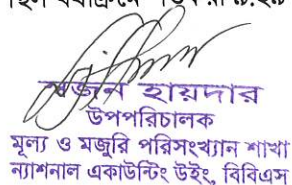 হায়দার
উপপরিচালক
মূল্য ও মজুরি পরিসংখ্যান শাখা
ন্যাশনাল একাউন্টিং উইং, বিবিএস